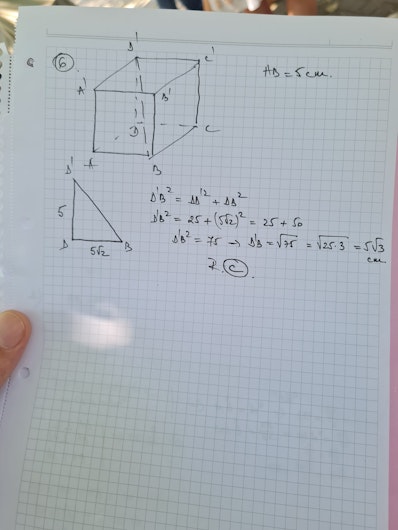 6
D'
C'
A'
B'
AB = 5 cm.
D
C
A
B
D'
5
D
5√2
B
D'B² = DD'² + DB²
D'B² = 25 + (5√2)² = 25 + 50
D'B² = 75 → D'B = √75 = √25·3 = 5√3
cm.
R. C.